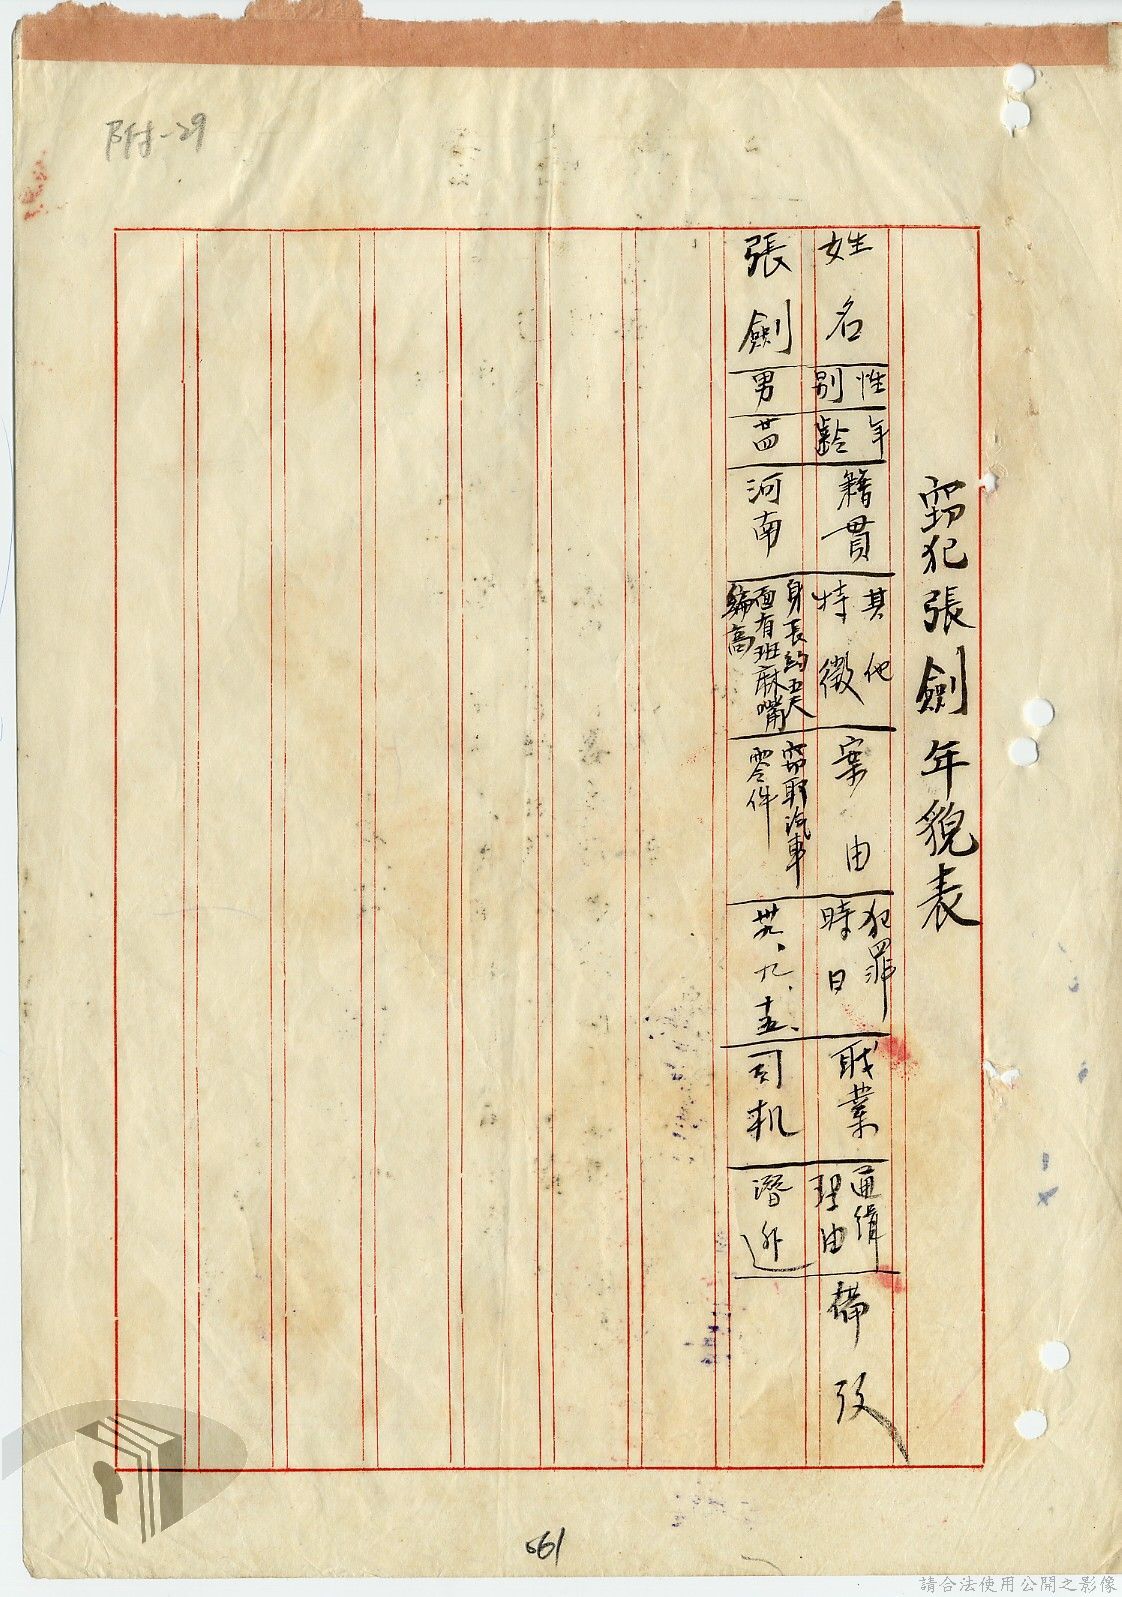 附-29
竊犯張劍年貌表
姓名
性別
年齡
籍貫
其他特徵
案由
犯罪時日
職業
通緝理由
備攷
張劍
男
廿四
河南
身長約五尺
面有班麻嘴
編高
竊取汽車
零件
卅九、九、十五、
司机
潛逃
061
請合法使用公開之影像